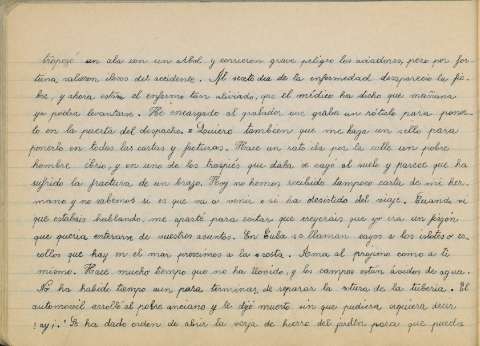 tropezó un ala con un árbol y corrieron grave peligro los aviadores, pero por for-
tuna salieron ilesos del accidente. Al sexto día de la enfermedad desapareció la fie-
bre, y ahora estira el enfermo tan aliviado, que el médico ha dicho que mañana
ya podrá levantarse. He encargado al grabador que grabe un rótulo para poner-
lo en la puerta del despacho. Quiero también que me haga un sello para
ponerlo en todas las cartas y facturas. Hace un rato iba por la calle un pobre
hombre ebrio, y en uno de los traspiés que daba se cayó al suelo y parece que ha
sufrido la fractura de un brazo. Hoy no hemos recibido tampoco carta de mi her-
mano y no sabemos si es que va a venir o si ha desistido del viaje. Cuando vi
que estabais hablando, me aparté para evitar que creyerais que yo era un fisgón
que quería enterarse de vuestros asuntos. En Cuba llaman cayos a los islotes o es-
collos que hay en el mar próximos a la costa. Ama al prójimo como a ti
mismo. Hace mucho tiempo que no ha llovido, y los campos están ávidos de agua.
No ha habido tiempo aun para terminar de reparar la rotura de la tubería. El
automóvil arrolló al pobre anciano y le dejó muerto sin que pudiera siquiera decir
¡ay!. Se ha dado orden de abrir la verja de hierro del jardín para que pueda